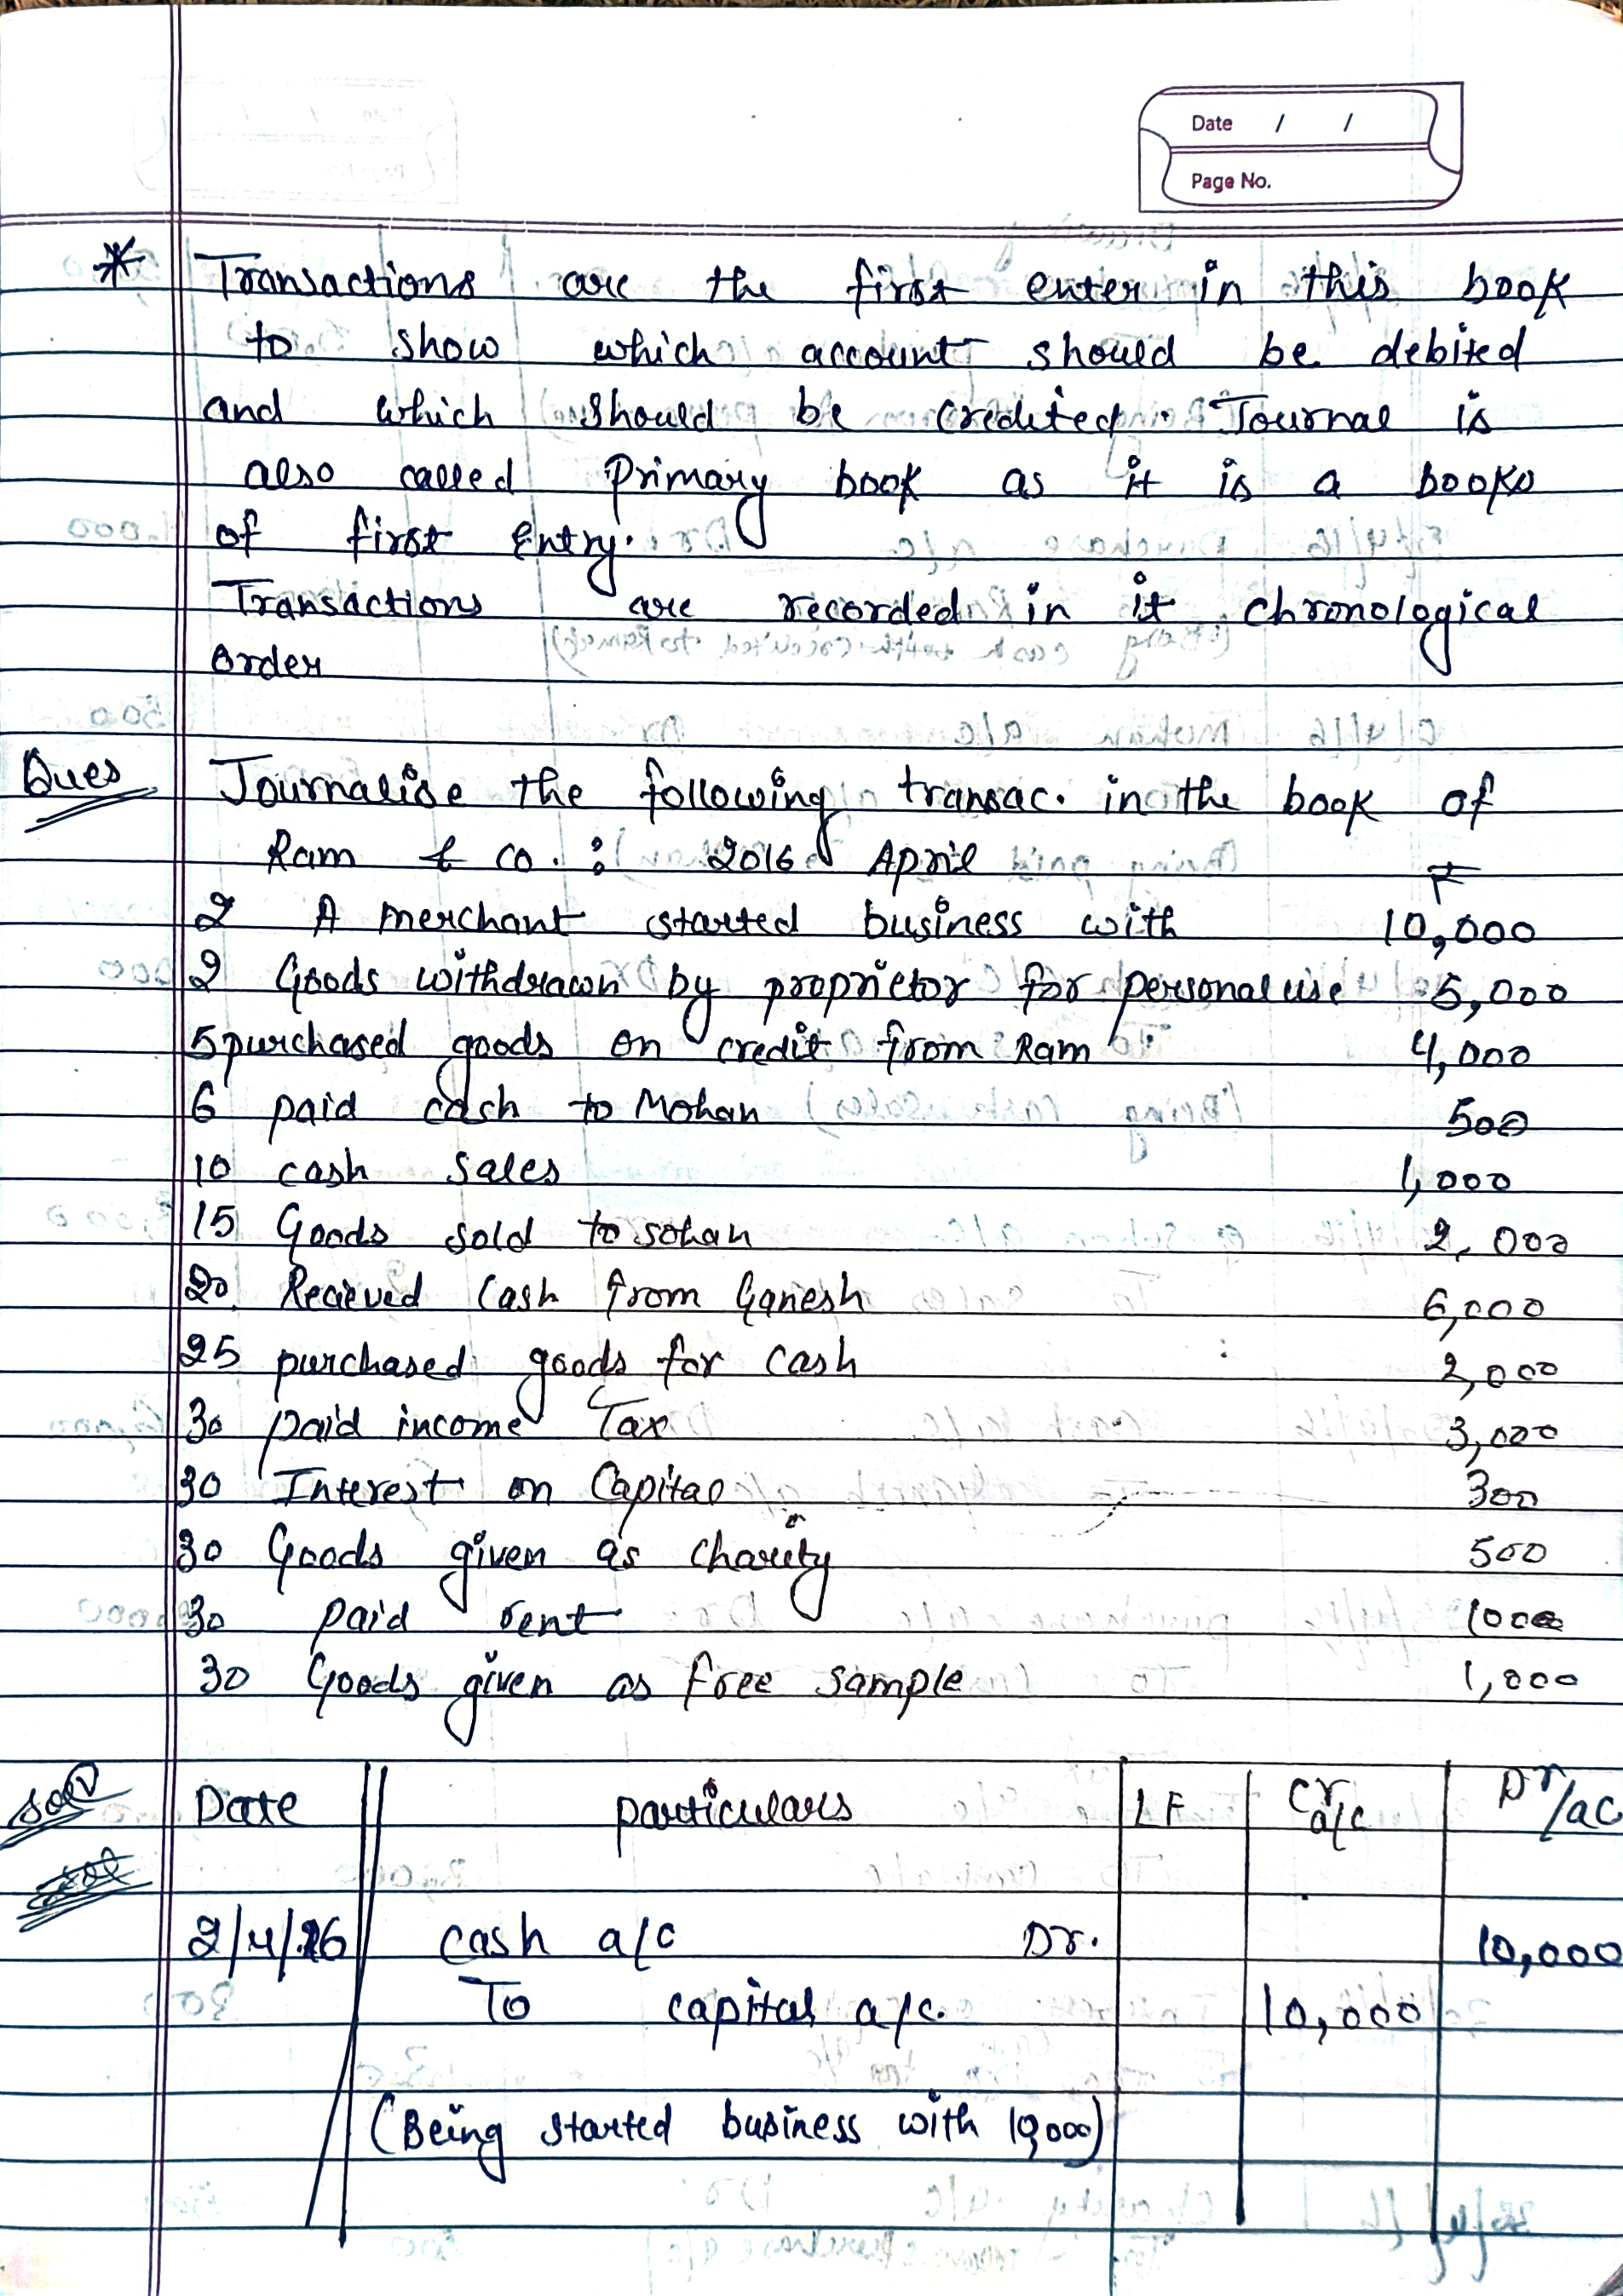 Date / /
Page No.
* Transactions are the first enter in this book
to show which account should be debited
and which should be credited. Journal is
also called Primary book as it is a books
of first Entry.
Transactions are recorded in it chronological
order
Ques Journalise the following transac. in the book of
Ram & co. : 2016 April ₹
2 A merchant started business with 10,000
2 Goods withdrawn by proprietor for personal use 5,000
5 purchased goods on credit from Ram 4,000
6 paid cash to Mohan 500
10 cash sales 1,000
15 Goods sold to sohan 2,000
20. Recieved cash from Ganesh 6,000
25 purchased goods for cash 2,000
30 paid income Tax 3,000
30 Interest on Capital 300
30 Goods given as charity 500
30 paid rent 1000
30 Goods given as free sample 1,000
Date particulars LF Cr a/c Dr/ac
2/4/16 cash a/c Dr. 10,000
To capital a/c. 10,000
(Being started business with 10,000)